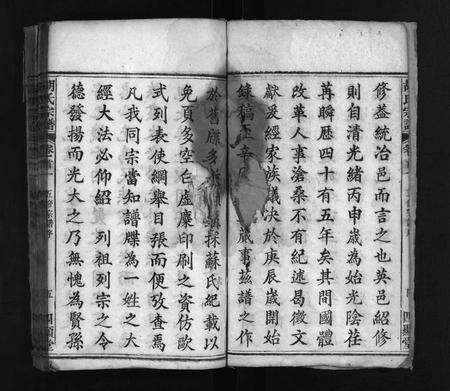 修益統冶邑而言之也英邑紹修
則自清光緒丙申歲為始光陰荏
苒瞬歷四十有五年矣其間國體
改革人事滄桑不有紀述曷徵文
獻爰經家族議決於庚辰歲開始
歲事茲譜之作
採蘇氏紀載以
免頁多空白虛糜印刷之資仿歐
式列表使綱舉目張而便孜查焉
凡我同宗當知譜牒為一姓之大
經大法必仰紹 列祖列宗之令
德發揚而光大之乃無愧為賢孫
胡氏宗譜